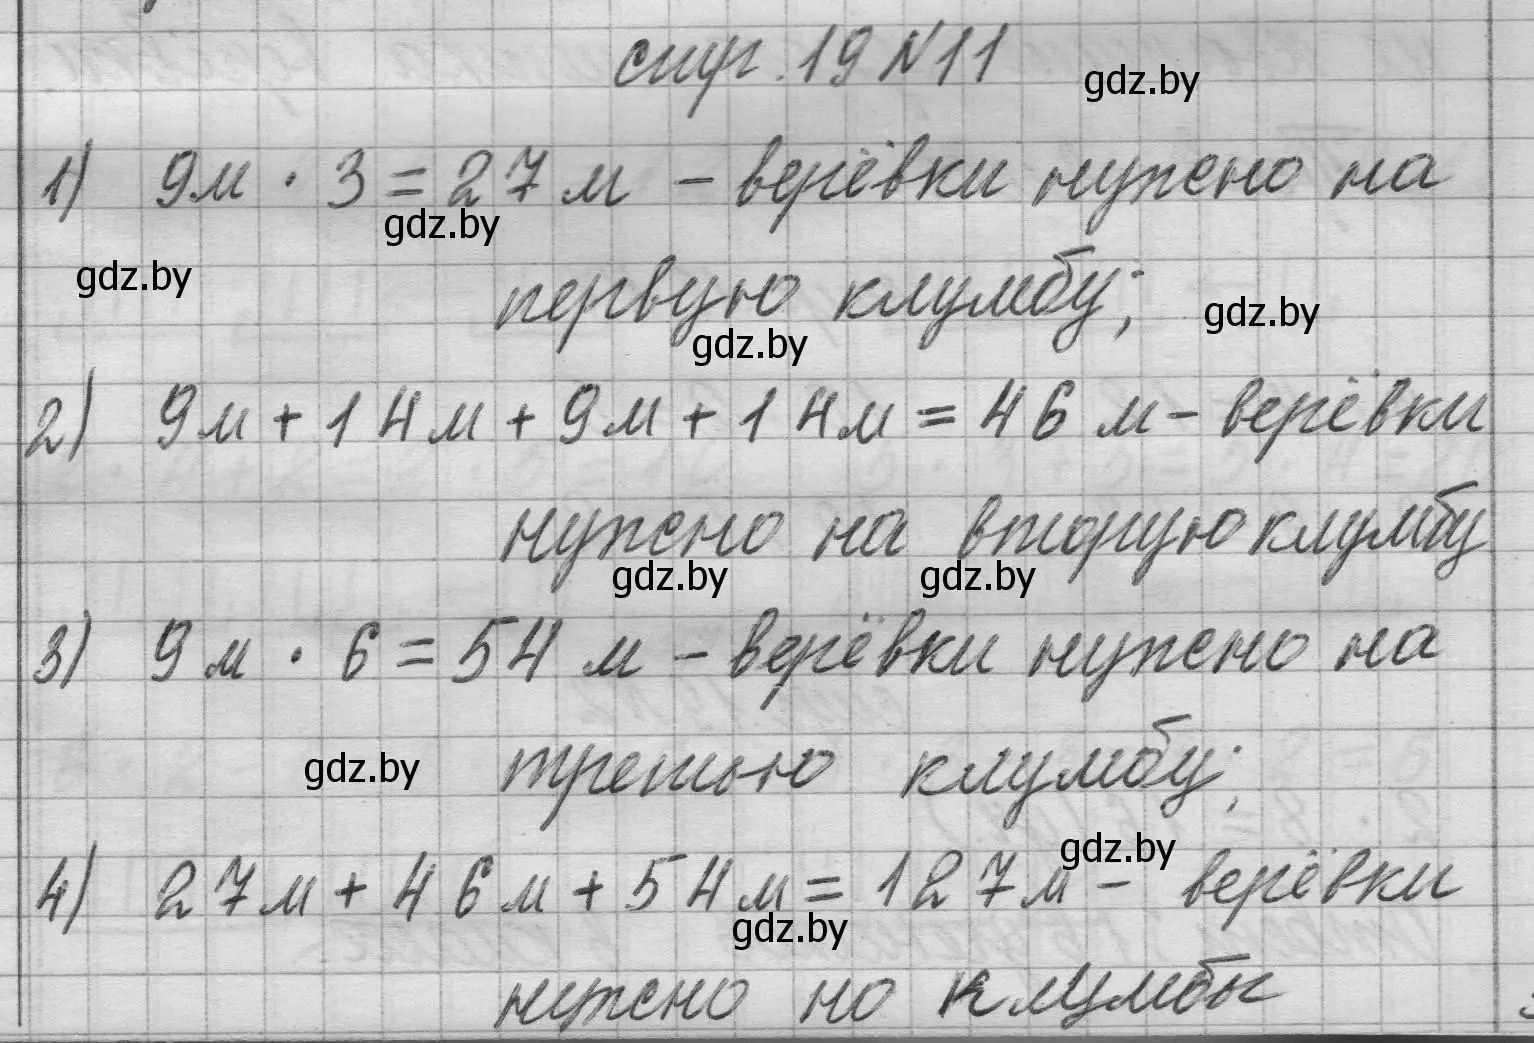 стр. 19 N 11
gdz.by
1) 9м · 3 = 27 м - верёвки нужно на
gdz.by
gdz.by
первую клумбу;
gdz.by
gdz.by
2) 9м + 14м + 9м + 14м = 46 м - верёвки
нужно на вторую клумбу
gdz.by gdz.by
3) 9м · 6 = 54 м - верёвки нужно на
gdz.by третью клумбу;
gdz.by
4) 27м + 46м + 54м = 127м - верёвки
gdz.by
нужно но клумбы